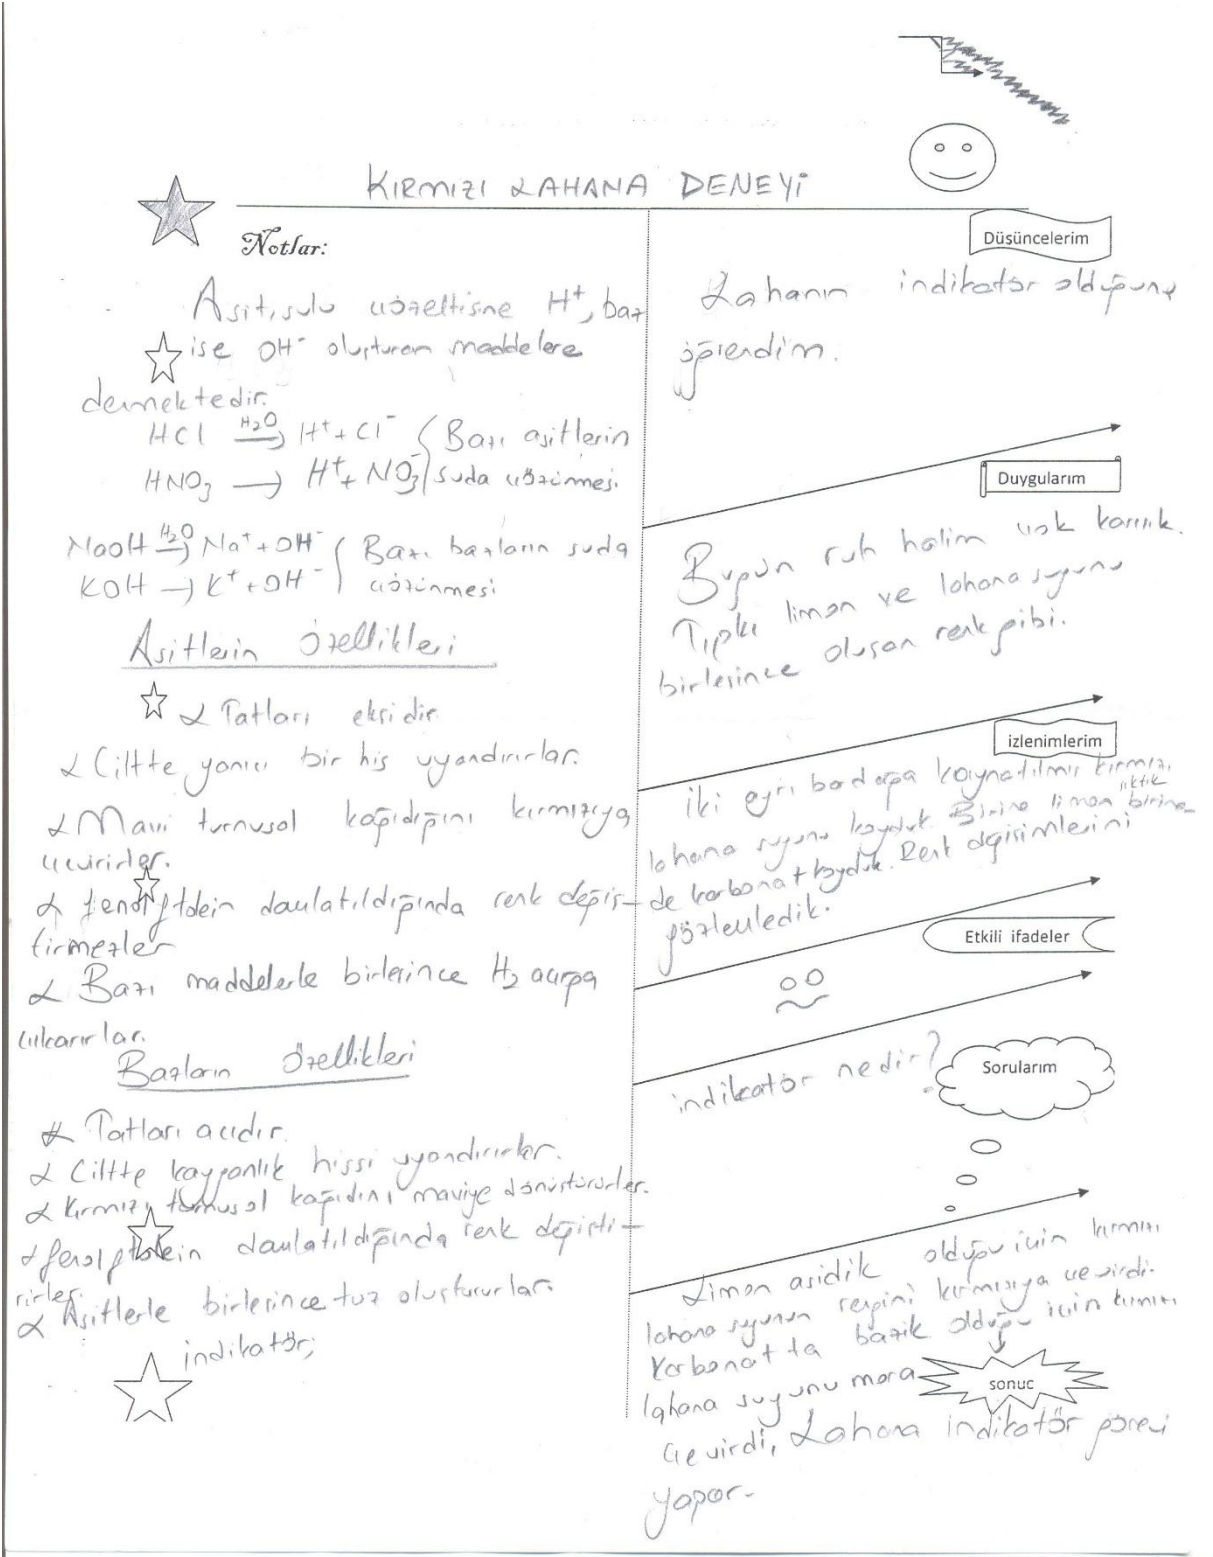 KIRMIZI LAHANA DENEYİ
Notlar:
Asit, sulu çözeltisine H⁺, baz
ise OH⁻ oluşturan maddelere
denmektedir.
HCl H₂O→ H⁺ + Cl⁻ { Bazı asitlerin
HNO₃ → H⁺ + NO₃⁻ { suda çözünmesi.
NaOH H₂O→ Na⁺ + OH⁻ { Bazı bazların suda
KOH → K⁺ + OH⁻ { çözünmesi
Asitlerin özellikleri
Tatları ekşidir.
Ciltte yanıcı bir his uyandırırlar.
Mavi turnusol kağıdığını kırmızıya
çevirirler.
fenolftalein damlatıldığında renk değiş-
tirmezler
Bazı maddelerle birleşince H₂ açığa
çıkarırlar.
Bazların özellikleri
Tatları acıdır.
Ciltte kayganlık hissi uyandırırlar.
Kırmızı turnusol kağıdını maviye dönüştürürler.
fenolftalein damlatıldığında renk değişti-
rirler.
Asitlerle birleşince tuz oluştururlar.
indikatör;
Düşüncelerim
Lahanın indikatör olduğunu
öğrendim.
Duygularım
Bugün ruh halim çok karışık.
Tıpkı limon ve lahana suyunu
birleşince oluşan renk gibi.
izlenimlerim
İki ayrı bardağa kaynatılmış kırmızı
lahana suyunu koyduk. Birine limon sıktık birine
de karbonat koyduk. Renk değişimlerini
gözlemledik.
Etkili ifadeler
Sorularım
indikatör nedir?
Limon asidik olduğu için kırmızı
lahana suyunun rengini kırmızıya çevirdi.
Karbonat ta bazik olduğu için kırmızı
lahana suyunu mora
sonuc
çevirdi, Lahana indikatör görevi
yapar.